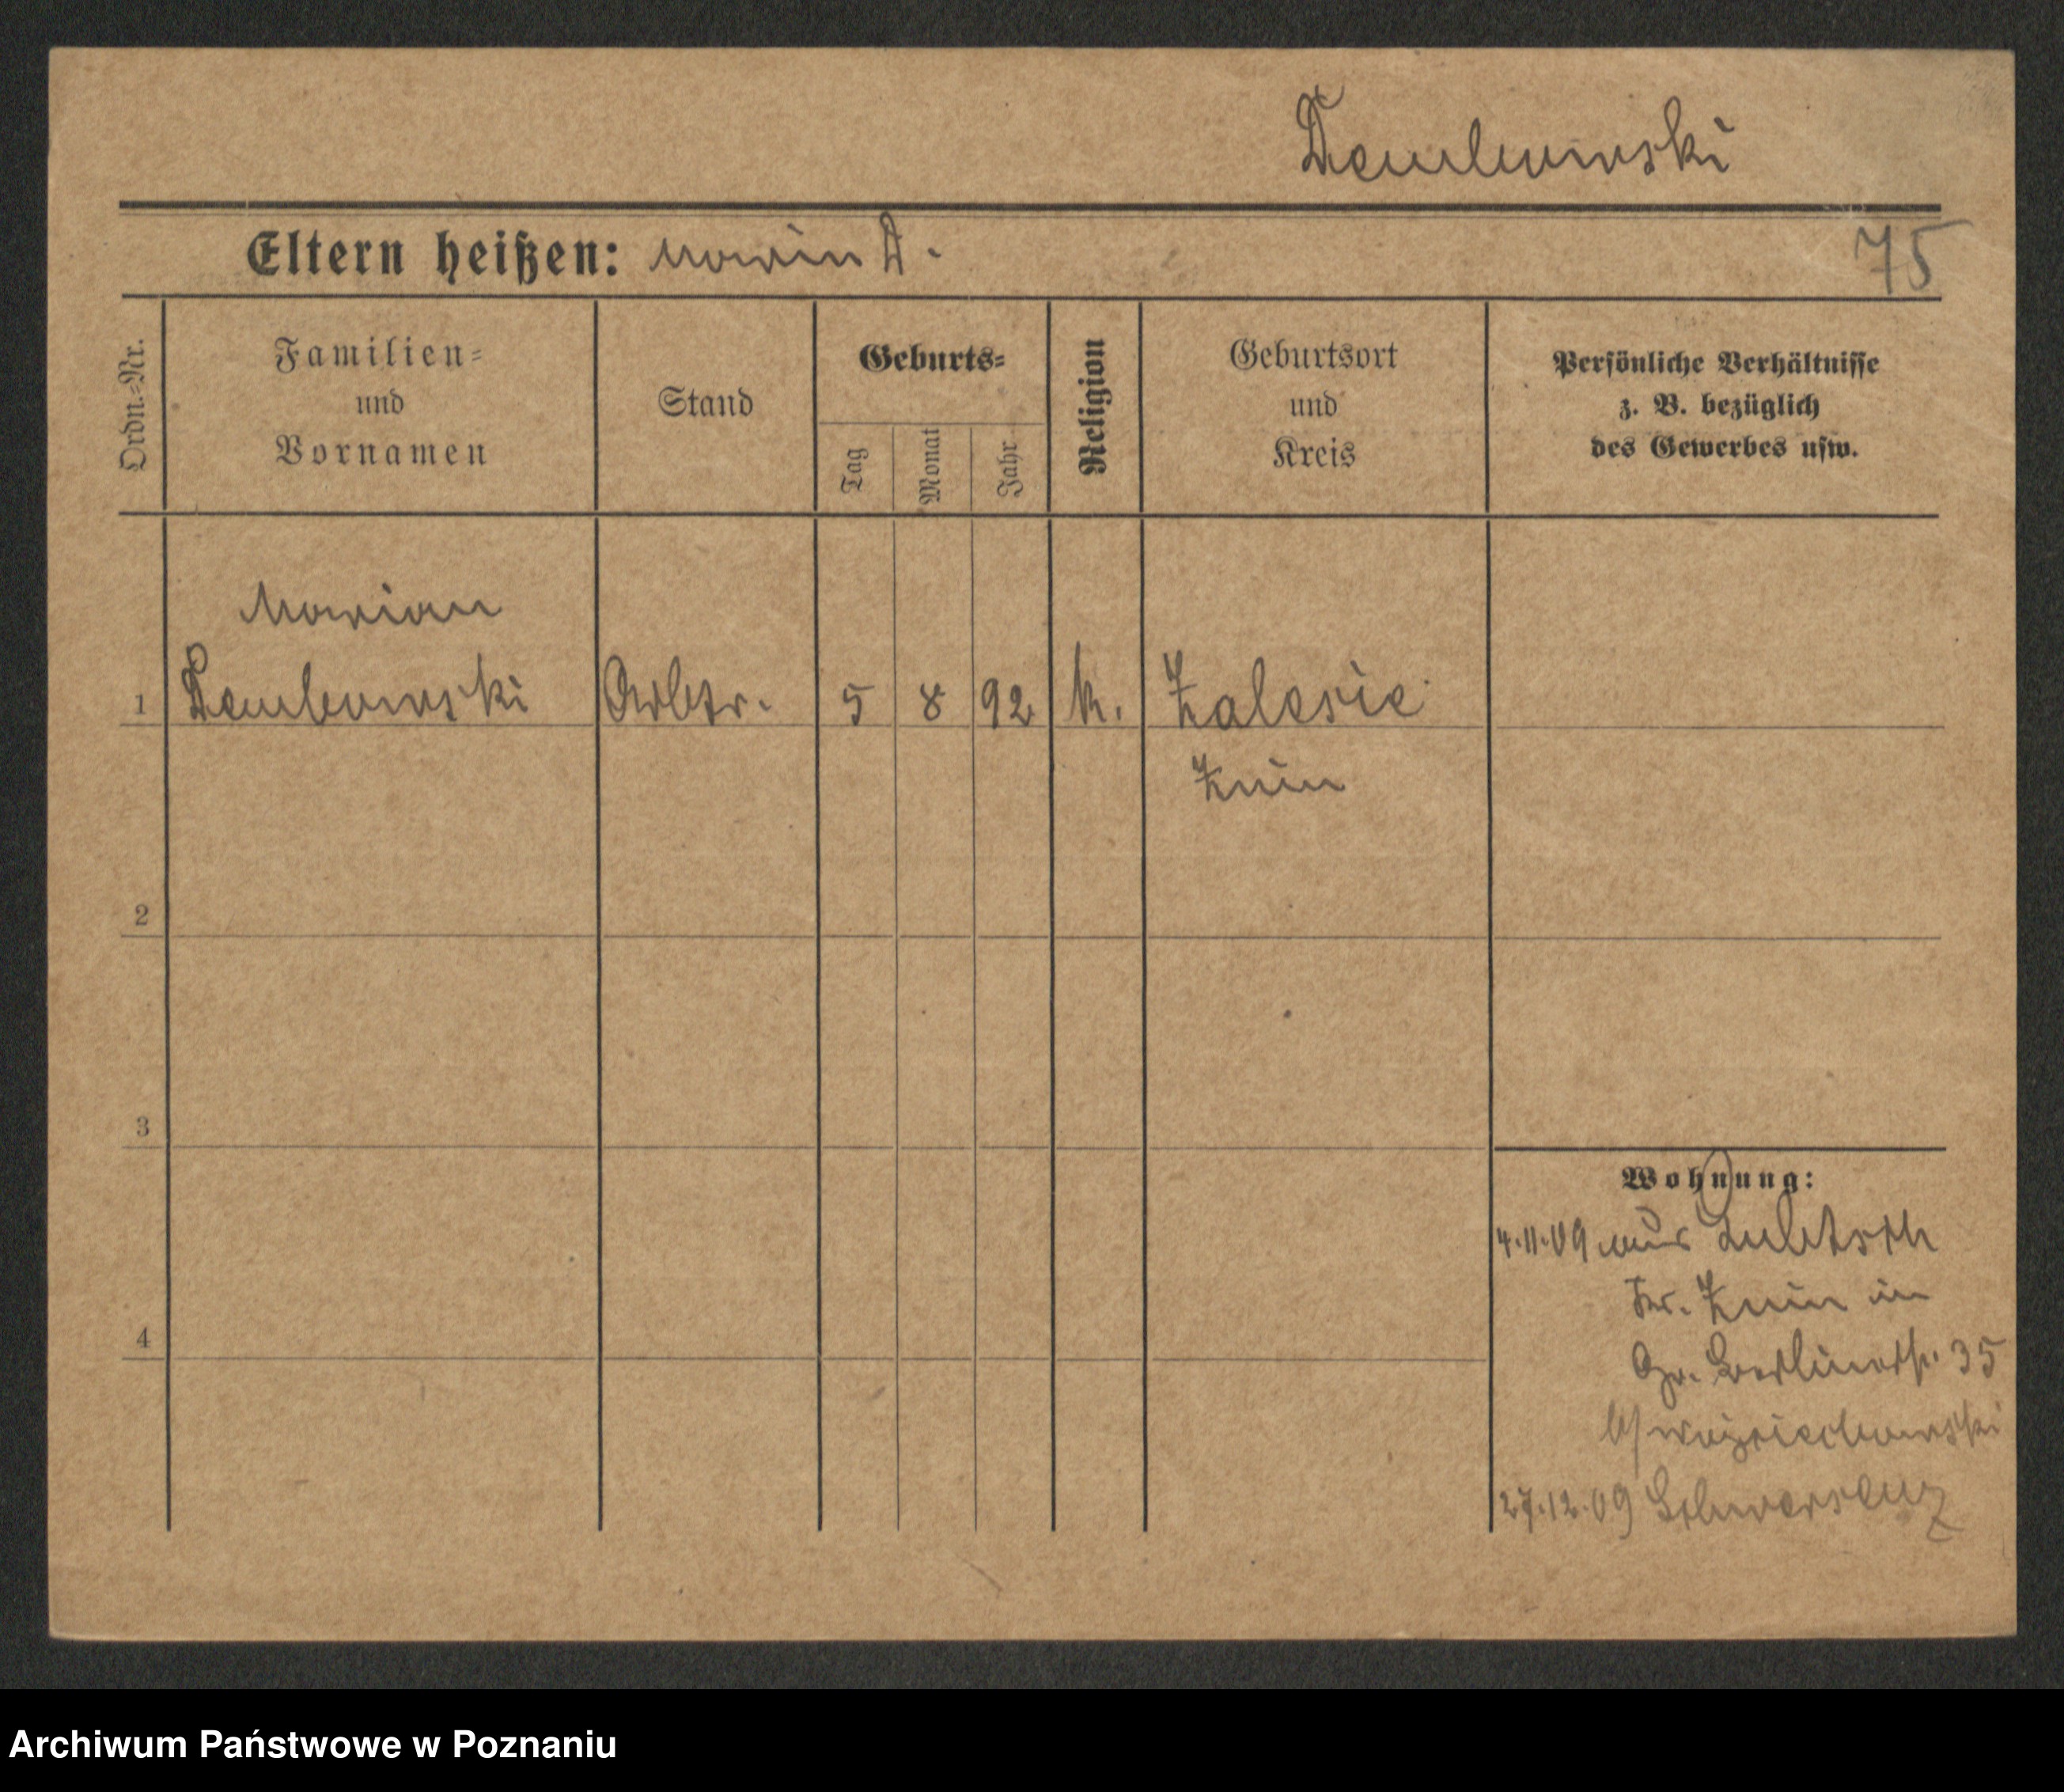 Dembowski
Eltern heißen: Marian D.
75
Ordn.-Nr.
Familien-
und
Vornamen
Stand
Geburts-
Tag
Monat
Jahr
Religion
Geburtsort
und
Kreis
Persönliche Verhältnisse
z. B. bezüglich
des Gewerbes usw.
Marian
1 Dembowski Arbtr. 5 8 92 k. Zalesie
Znin
2
3
4
Wohnung:
4.11.09 aus
Kr. Znin in
Gr. Berlinerstr. 35
b/ Wojciechowski
27.12.09 Schwersenz
Archiwum Państwowe w Poznaniu